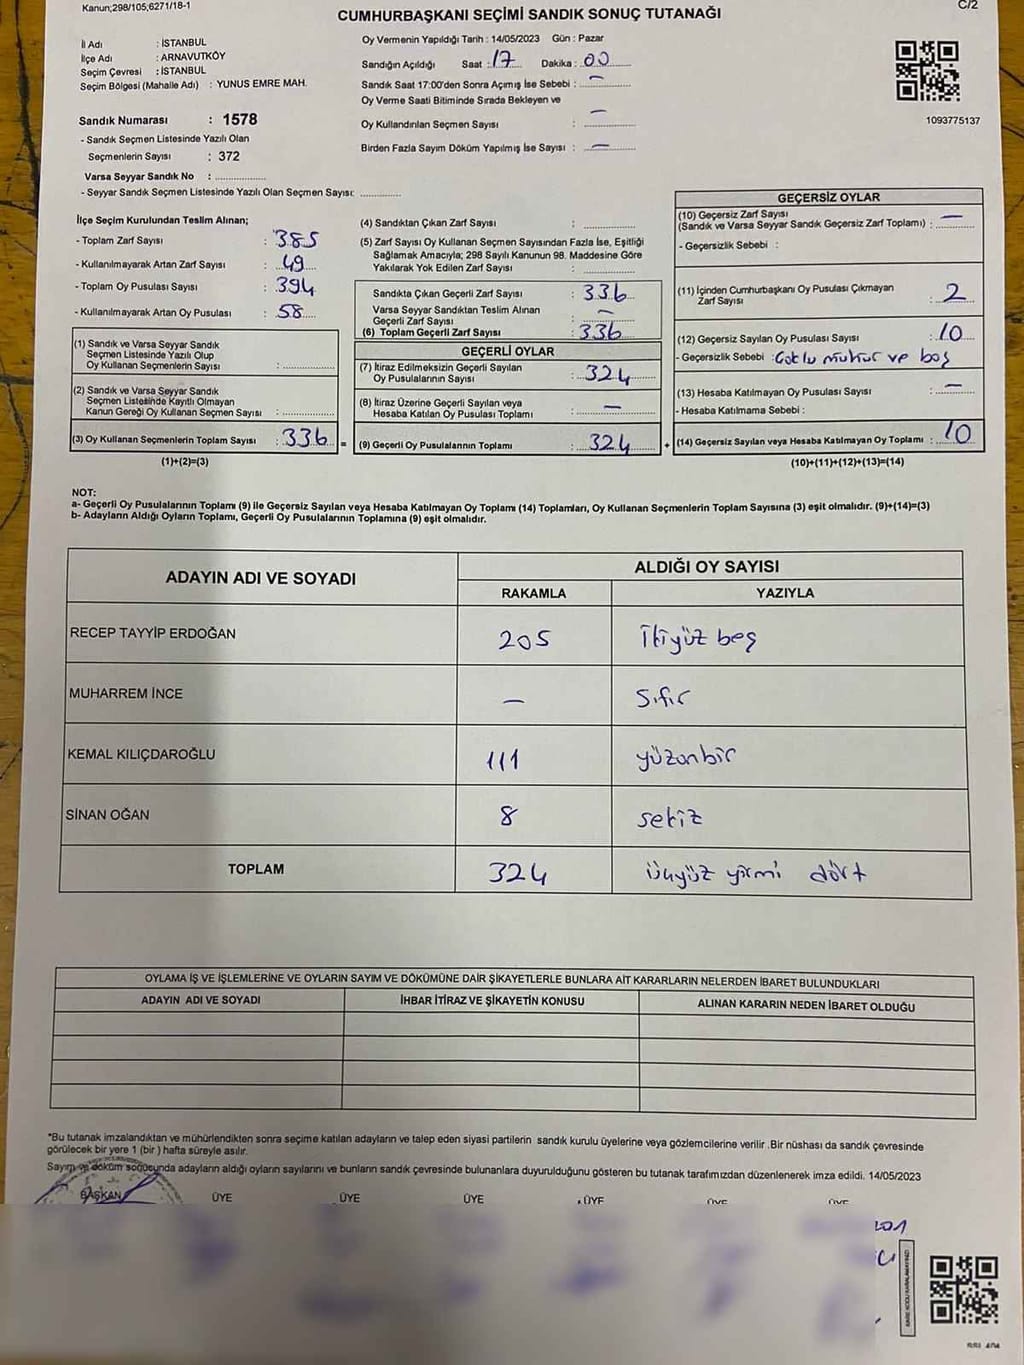 Kanun;298/105,6271/18-1
C/2
CUMHURBAŞKANI SEÇİMİ SANDIK SONUÇ TUTANAĞI
İl Adı : İSTANBUL
İlçe Adı : ARNAVUTKÖY
Seçim Çevresi : İSTANBUL
Seçim Bölgesi (Mahalle Adı) : YUNUS EMRE MAH.
Oy Vermenin Yapıldığı Tarih : 14/05/2023 Gün : Pazar
Sandığın Açıldığı Saat : 17 Dakika : 00
Sandık Saat 17:00'den Sonra Açımış İse Sebebi : —
Oy Verme Saati Bitiminde Sırada Bekleyen ve
Oy Kullandırılan Seçmen Sayısı : —
Birden Fazla Sayım Döküm Yapılmış İse Sayısı : —
1093775137
Sandık Numarası : 1578
- Sandık Seçmen Listesinde Yazılı Olan
Seçmenlerin Sayısı : 372
Varsa Seyyar Sandık No :
- Seyyar Sandık Seçmen Listesinde Yazılı Olan Seçmen Sayısı:
İlçe Seçim Kurulundan Teslim Alınan;
- Toplam Zarf Sayısı : 385
- Kullanılmayarak Artan Zarf Sayısı : 49
- Toplam Oy Pusulası Sayısı : 394
- Kullanılmayarak Artan Oy Pusulası : 58
(1) Sandık ve Varsa Seyyar Sandık
Seçmen Listesinde Yazılı Olup
Oy Kullanan Seçmenlerin Sayısı :
(2) Sandık ve Varsa Seyyar Sandık
Seçmen Listesinde Kayıtlı Olmayan
Kanun Gereği Oy Kullanan Seçmen Sayısı :
(3) Oy Kullanan Seçmenlerin Toplam Sayısı : 336 =
(1)+(2)=(3)
(4) Sandıktan Çıkan Zarf Sayısı :
(5) Zarf Sayısı Oy Kullanan Seçmen Sayısından Fazla İse, Eşitliği
Sağlamak Amacıyla; 298 Sayılı Kanunun 98. Maddesine Göre
Yakılarak Yok Edilen Zarf Sayısı :
Sandıkta Çıkan Geçerli Zarf Sayısı : 336
Varsa Seyyar Sandıktan Teslim Alınan
Geçerli Zarf Sayısı : —
(6) Toplam Geçerli Zarf Sayısı : 336
GEÇERLİ OYLAR
(7) İtiraz Edilmeksizin Geçerli Sayılan
Oy Pusulalarının Sayısı : 324
(8) İtiraz Üzerine Geçerli Sayılan veya
Hesaba Katılan Oy Pusulası Toplamı : —
(9) Geçerli Oy Pusulalarının Toplamı : 324 +
GEÇERSİZ OYLAR
(10) Geçersiz Zarf Sayısı
(Sandık ve Varsa Seyyar Sandık Geçersiz Zarf Toplamı) : —
- Geçersizlik Sebebi :
(11) İçinden Cumhurbaşkanı Oy Pusulası Çıkmayan
Zarf Sayısı : 2
(12) Geçersiz Sayılan Oy Pusulası Sayısı : 10
- Geçersizlik Sebebi : Çoklu mühür ve boş
(13) Hesaba Katılmayan Oy Pusulası Sayısı : —
- Hesaba Katılmama Sebebi :
(14) Geçersiz Sayılan veya Hesaba Katılmayan Oy Toplamı : 10
(10)+(11)+(12)+(13)=(14)
NOT:
a- Geçerli Oy Pusulalarının Toplamı (9) ile Geçersiz Sayılan veya Hesaba Katılmayan Oy Toplamı (14) Toplamları, Oy Kullanan Seçmenlerin Toplam Sayısına (3) eşit olmalıdır. (9)+(14)=(3)
b- Adayların Aldığı Oyların Toplamı, Geçerli Oy Pusulalarının Toplamına (9) eşit olmalıdır.
ADAYIN ADI VE SOYADI
ALDIĞI OY SAYISI
RAKAMLA YAZIYLA
RECEP TAYYİP ERDOĞAN 205 İkiyüz beş
MUHARREM İNCE — Sıfır
KEMAL KILIÇDAROĞLU 111 yüzonbir
SİNAN OĞAN 8 sekiz
TOPLAM 324 üçyüz yirmi dört
OYLAMA İŞ VE İŞLEMLERİNE VE OYLARIN SAYIM VE DÖKÜMÜNE DAİR ŞİKAYETLERLE BUNLARA AİT KARARLARIN NELERDEN İBARET BULUNDUKLARI
ADAYIN ADI VE SOYADI İHBAR İTİRAZ VE ŞİKAYETİN KONUSU ALINAN KARARIN NEDEN İBARET OLDUĞU
*Bu tutanak imzalandıktan ve mühürlendikten sonra seçime katılan adayların ve talep eden siyasi partilerin sandık kurulu üyelerine veya gözlemcilerine verilir .Bir nüshası da sandık çevresinde
görülecek bir yere 1 (bir ) hafta süreyle asılır.
Sayım ve döküm sonucunda adayların aldığı oyların sayılarını ve bunların sandık çevresinde bulunanlara duyurulduğunu gösteren bu tutanak tarafımızdan düzenlenerek imza edildi. 14/05/2023
BAŞKAN ÜYE ÜYE ÜYE ÜYE ÜYE ÜYE